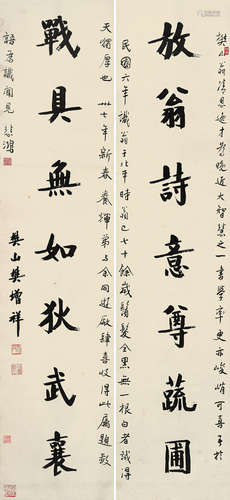 樊山翁清思逸才為晚近大智慧之一書學率更亦峻峭可喜予於
放翁詩意尊蔬圃
民國六年識翁于北平時翁已七十餘歲鬚髮全黑無一根白者誠得
天獨厚也卅七年新春養輝弟與余同遊廠肆喜收得此屬題數
戰具無如狄武襄
語并識聞見 悲鴻
樊山樊增祥